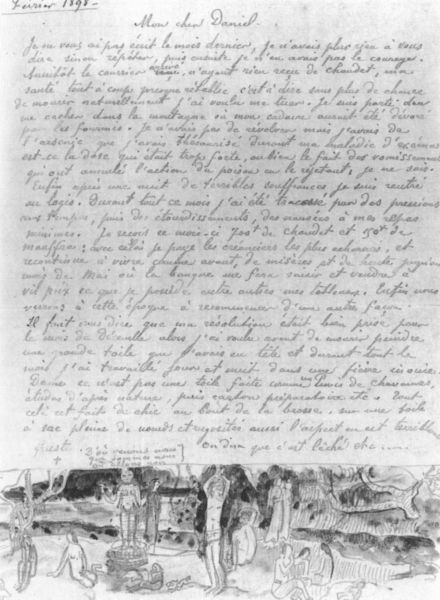 Février 1898 -
Mon cher Daniel.
Je ne vous ai pas écrit le mois dernier, je n'avais plus rien à vous
dire sinon répéter, puis ensuite je n'en avais pas le courage.
Aussitôt le courrier arrivé, n'ayant rien reçu de Chaudet, ma
santé tout à coup presque rétablie c'est à dire sans plus de chance
de mourir naturellement j'ai voulu me tuer. Je suis parti
me cacher dans la montagne où mon cadavre aurait été dévoré
par les fourmis. Je n'avais pas de révolver mais j'avais de
l'arsenic que j'avais thésaurisé durant ma maladie d'eczéma
est-ce la dose qui était trop forte, ou bien le fait des vomissements
qui ont annulé l'action du poison en le rejetant, je ne sais.
Enfin après une nuit de terribles souffrances je suis rentré
au logis. Durant tout ce mois j'ai été tracassé par des pressions
aux tempes, puis des étourdissements, des nausées à mes repas
minimes. Je reçois ce mois-ci 700f de Chaudet et 150f de
Mauffra: avec cela je paye les créanciers les plus acharnés, et
recontinue à vivre comme avant de misères et de honte jusqu'au
mois de Mai où la banque me fera saisir et vendre à
vil prix ce que je possède entre autres mes tableaux. Enfin nous
verrons à cette époque à recommencer d'une autre façon.
Il faut vous dire que ma résolution était bien prise pour
le mois de décembre alors j'ai voulu avant de mourir peindre
une grande toile que j'avais en tête et durant tout le
mois j'ai travaillé jour et nuit dans une fièvre inouïe.
Dame ce n'est pas une toile faite comme un Puvis de Chavannes,
études d'après nature, puis carton préparatoire etc. Tout
cela est fait de chic au bout de la brosse, sur une toile
à sac pleine de nœuds et rugosités aussi l'aspect en est terriblement
fruste.
On dira que c'est lâché etc ....
D'où venons nous
que sommes nous
où allons nous